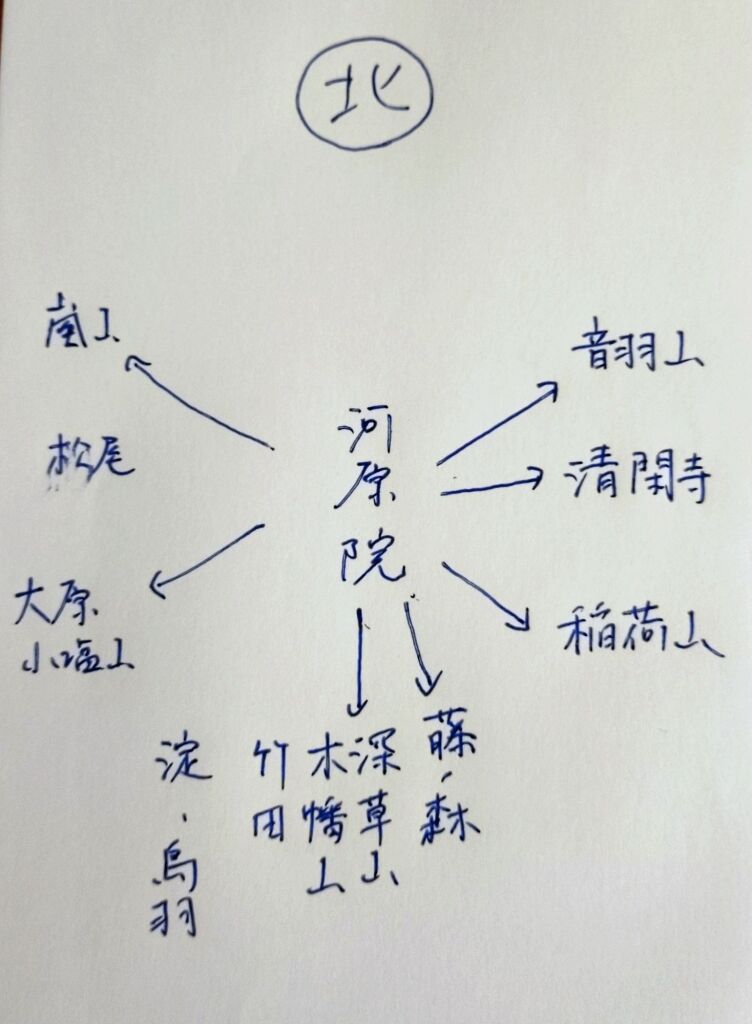 北
嵐山
松尾
大原
小塩山
河原院
音羽山
清閑寺
稲荷山
藤ノ森
深草山
木幡山
竹田
淀、鳥羽